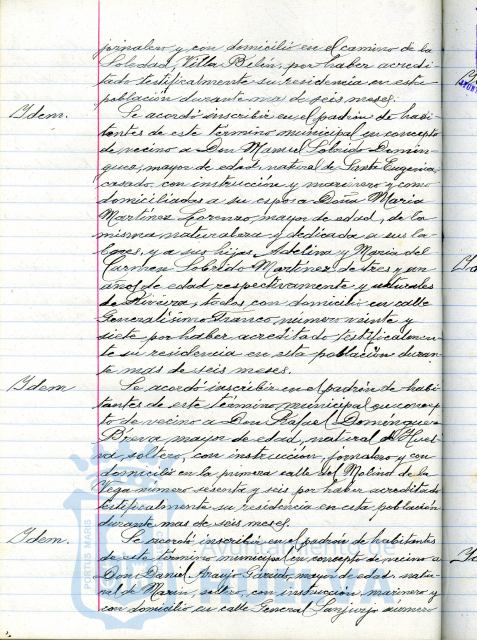 jornalero y con domicilio en el camino de la
Soledad, Villa Belén, por haber acredi-
tado testificalmente su residencia en esta
población durante mas de seis meses.
Idem. Se acordó inscribir en el padrón de habi-
tantes de este término municipal en concepto
de vecino a Don Manuel Sobrido Domín-
guez, mayor de edad, natural de Santa Eugenia,
casado, con instrucción y marinero y como
domiciliadas a su esposa Doña Maria
Martínez Lorenzo, mayor de edad, de la
misma naturaleza y dedicada a sus la-
bores, y a sus hijas Adelina y Maria del
Carmen Sobrido Martínez de tres y un
años de edad respectivamente y naturales
de Riveira, todas con domicilio en calle
Generalísimo Franco número veinte y
siete por haber acreditado testificalmen-
te su residencia en esta población duran-
te mas de seis meses.
Idem Se acordó inscribir en el padrón de habi-
tantes de este término municipal en concep-
to de vecino a Don Rafael Domínguez
Breva mayor de edad, natural de Huel-
va, soltero, con instrucción, jornalero y con
domicilio en la primera calle del Molino de la
Vega número sesenta y seis por haber acreditado
testificalmente su residencia en esta población
durante mas de seis meses.
Idem. Se acordó inscribir en el padrón de habitantes
de este término municipal en concepto de vecino a
Don Daniel Araujo Garrido, mayor de edad, natu-
ral de Marín, soltero, con instrucción, marinero y
con domicilio en calle General Sanjurjo número
PORTUS MARIS